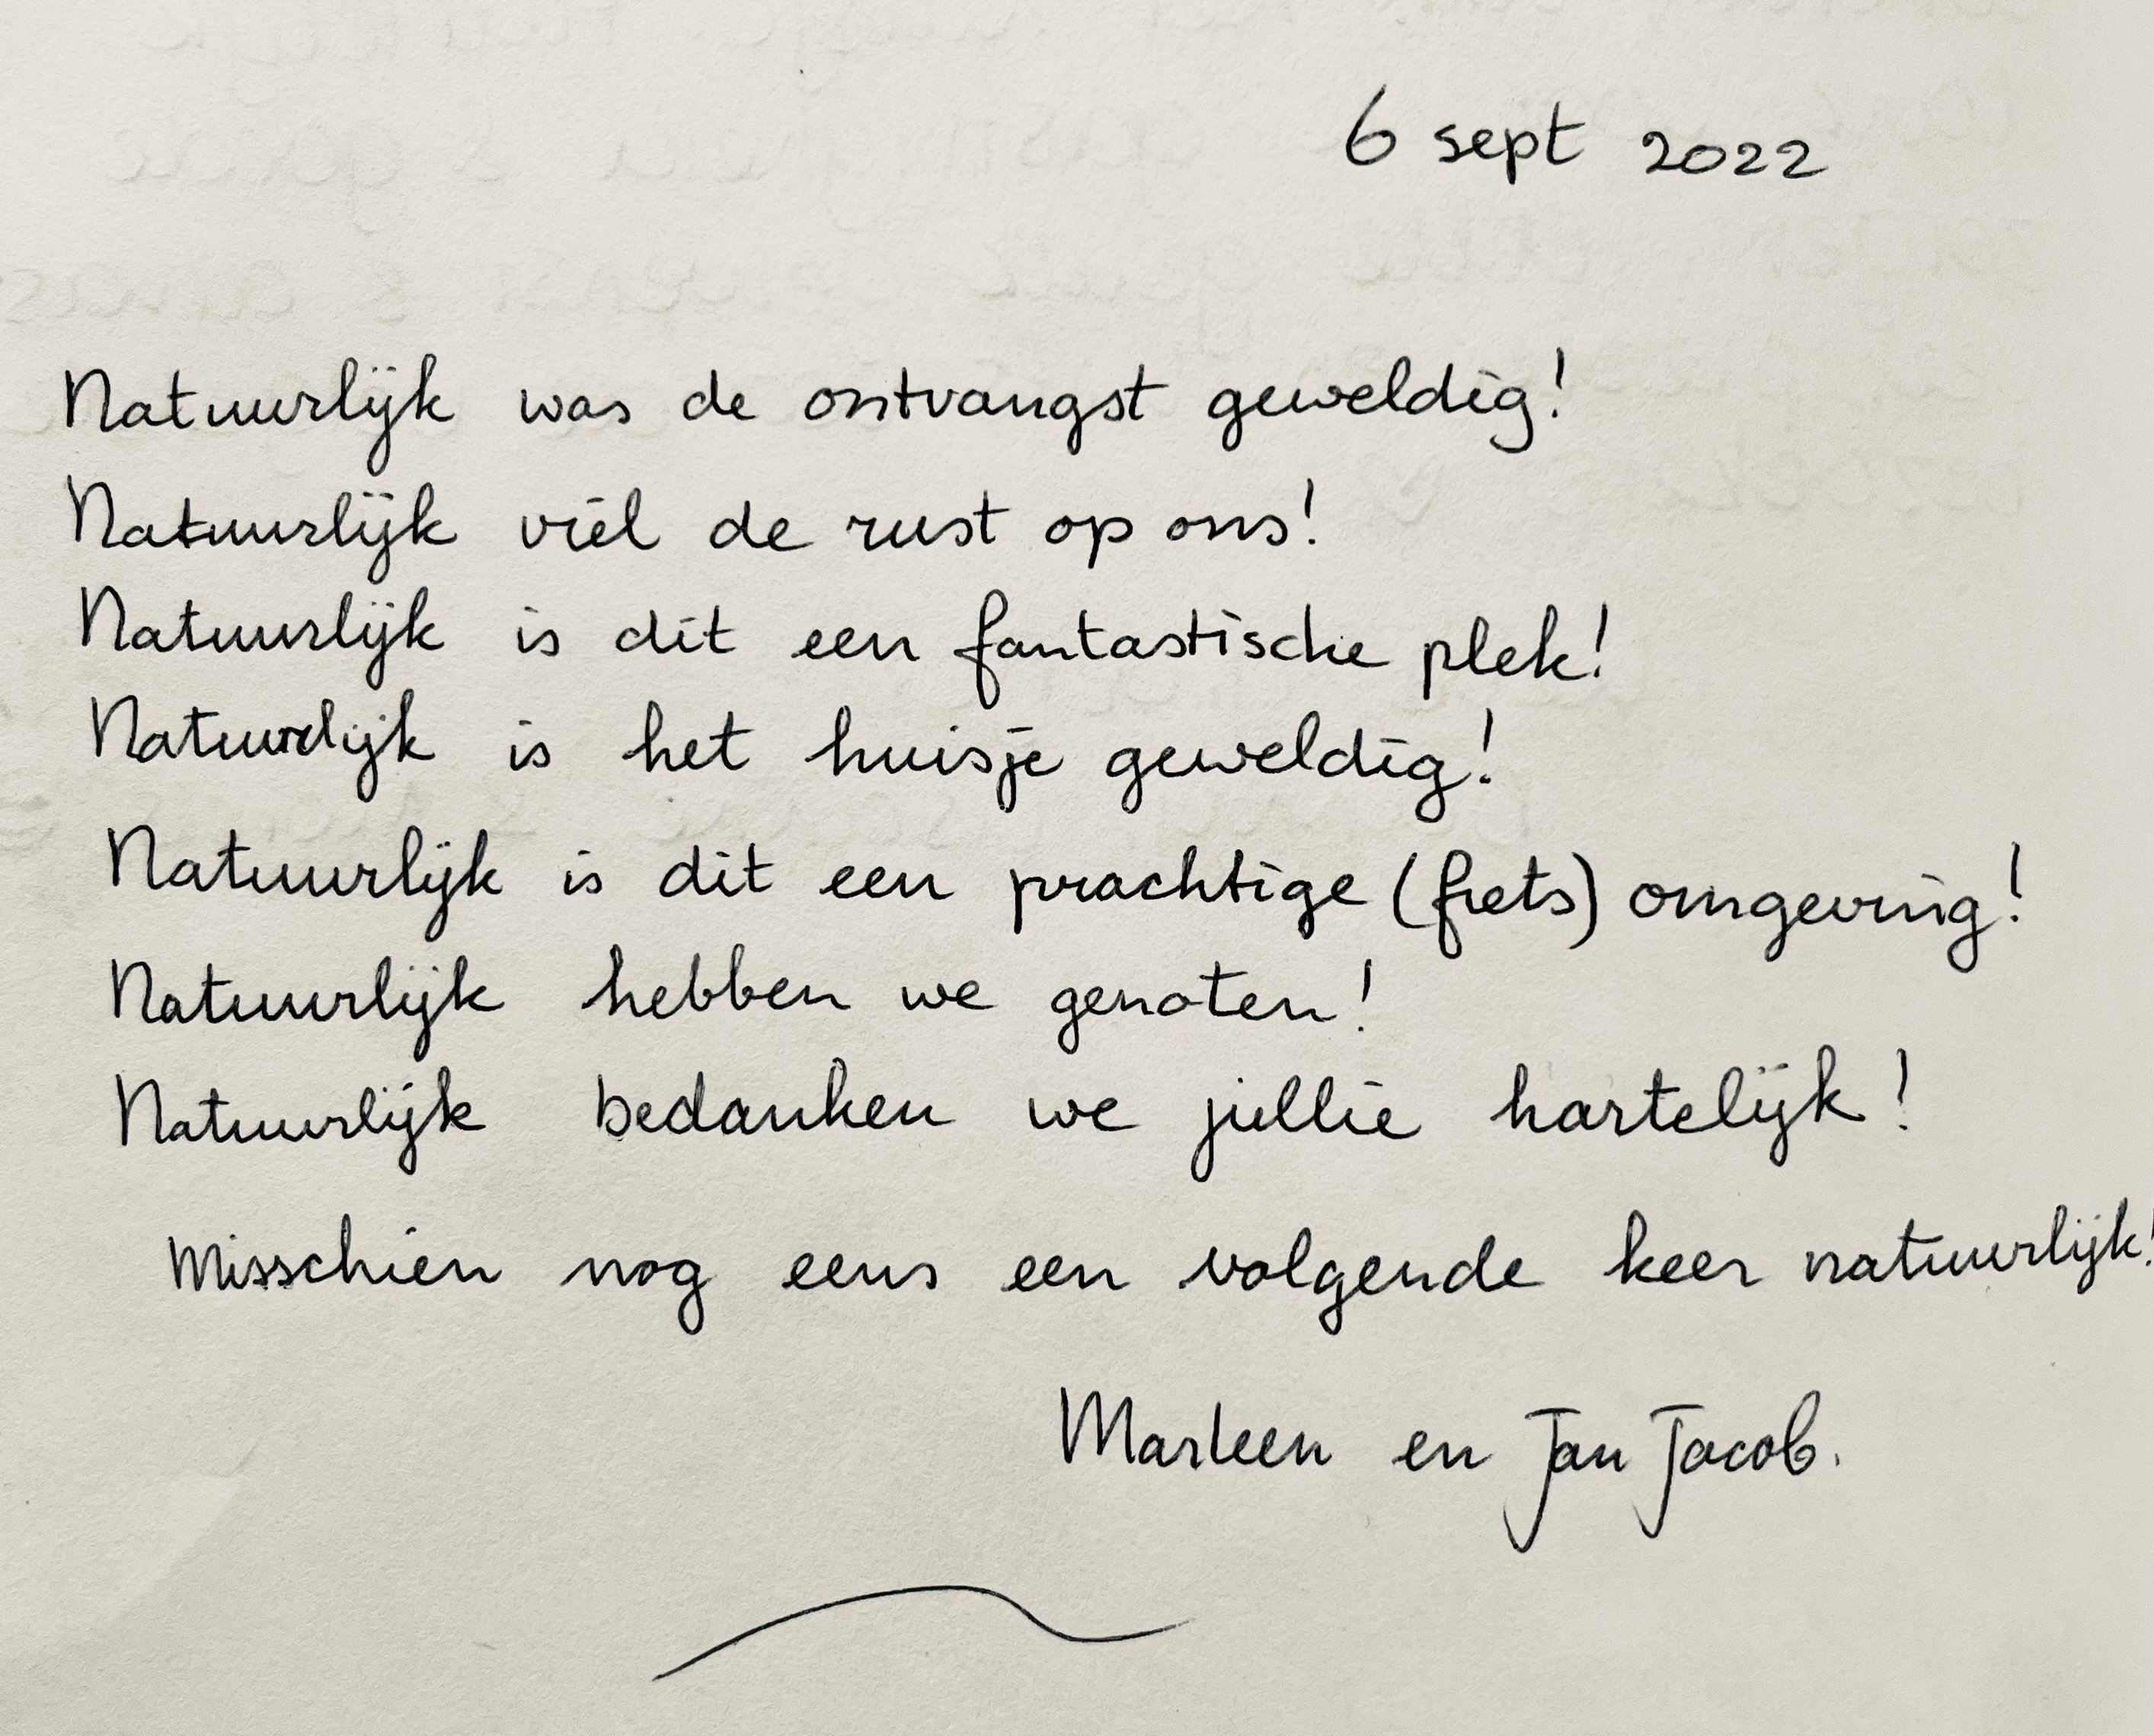 6 sept 2022
Natuurlijk was de ontvangst geweldig!
Natuurlijk viel de rust op ons!
Natuurlijk is dit een fantastische plek!
Natuurlijk is het huisje geweldig!
Natuurlijk is dit een prachtige (fiets) omgeving!
Natuurlijk hebben we genoten!
Natuurlijk bedanken we jullie hartelijk!
Misschien nog eens een volgende keer natuurlijk!
Marleen en Jan Jacob.